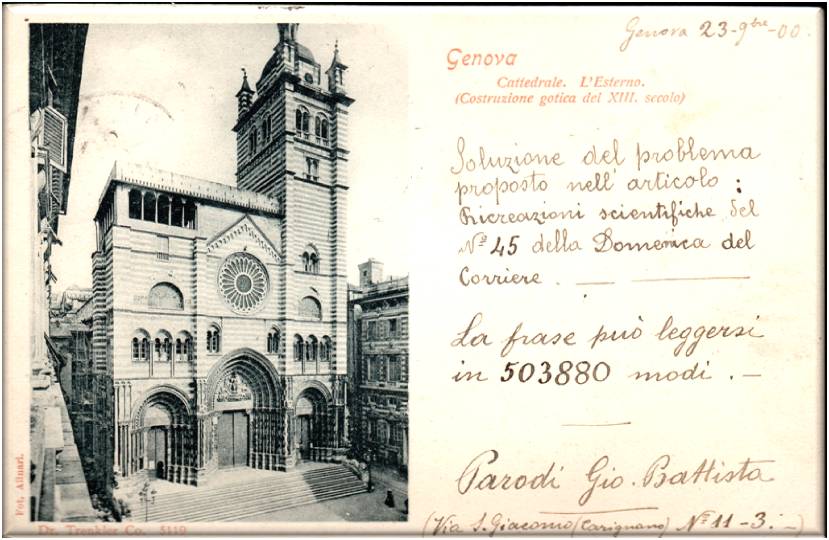 Genova 23-9bre-00.
Genova
Cattedrale. L'Esterno.
(Costruzione gotica del XIII. secolo)
Soluzione del problema
proposto nell'articolo:
Ricreazioni scientifiche del
No 45 della Domenica del
Corriere.
La frase può leggersi
in 503880 modi.—
Parodi Gio. Battista
(Via S. Giacomo (Carignano) No 11-3.—)
Fot. Alinari.
Dr. Trenkler Co. 5119